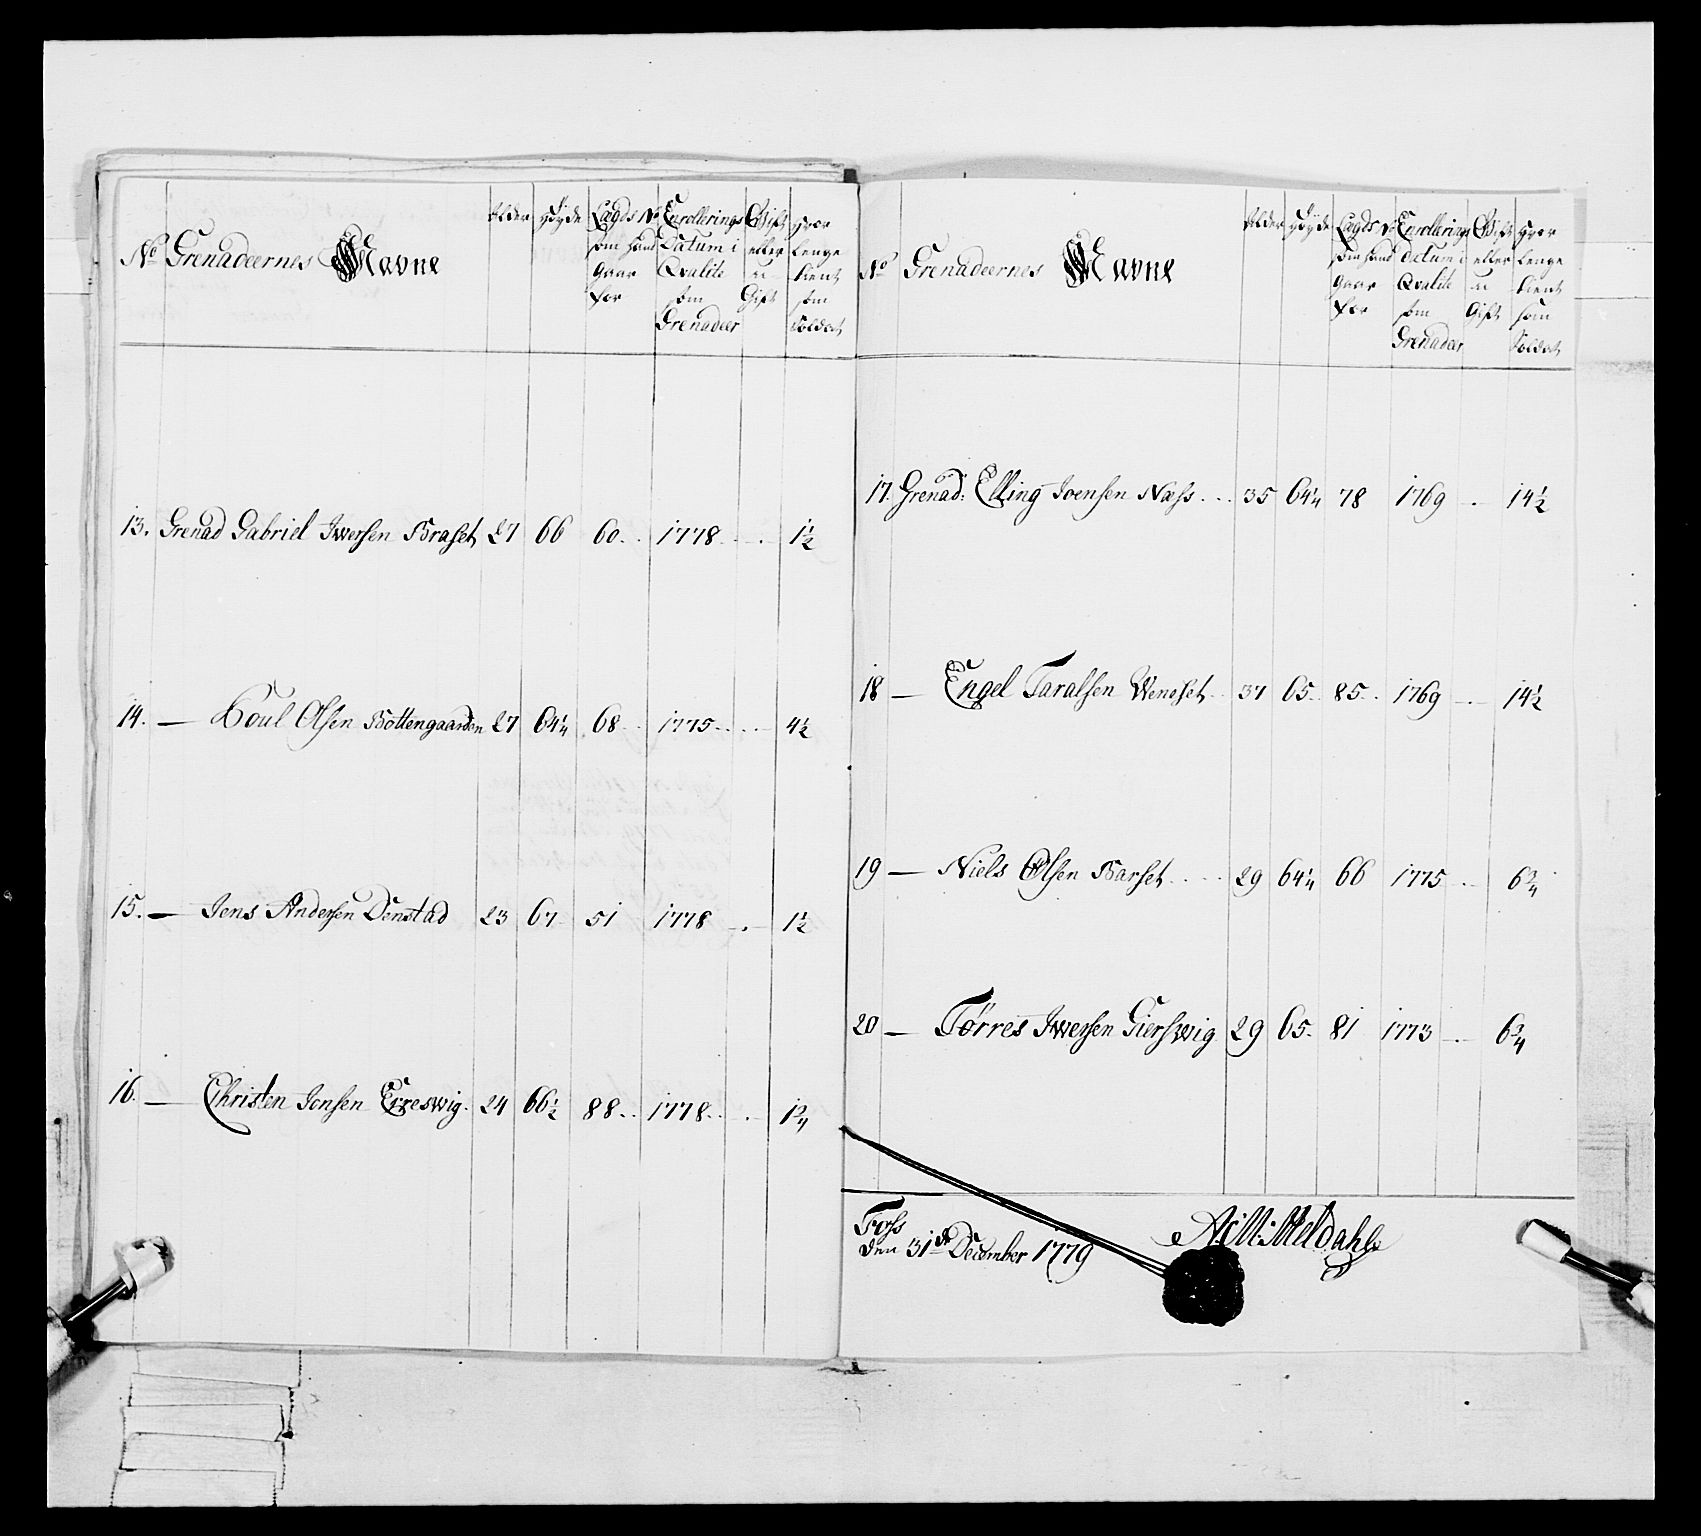 No Grenadeernes Navne
Alder
Høyde
Lægds No
som hand
gaar
for
Enrollerings
Datum i
Qvalite
som
Grenadeer
Gift
eller
u
Gift
Hvor
lenge
tient
som
Soldat
13. Grenad Gabriel Iwersen Braset 27 66 60 1778 1 1/2
14. — Poul Olsen Bottengaarden 27 64 1/4 68 1775 4 1/2
15. — Jens Andersen Denstad 23 67 51 1778 1 1/2
16. — Christen Jonsen Erreswig 24 66 1/2 88 1778 1 3/4
No Grenadeernes Navne
Alder
Høyde
Lægds No
som hand
gaar
for
Enrollerings
Datum i
Qvalite
som
Grenadeer
Gift
eller
u
Gift
Hvor
lenge
tient
som
Soldat
17. Grenad: Elling Joensen Næss 35 64 1/4 78 1769 14 1/2
18 — Engel Taralsen Weneset 37 65 85 1769 14 1/2
19 — Niels Olsen Barset 29 64 1/4 66 1775 6 3/4
20 — Tørres Iwersen Gierswig 29 65 81 1773 6 3/4
Foss
den 31de December 1779
A:M: Meldahl